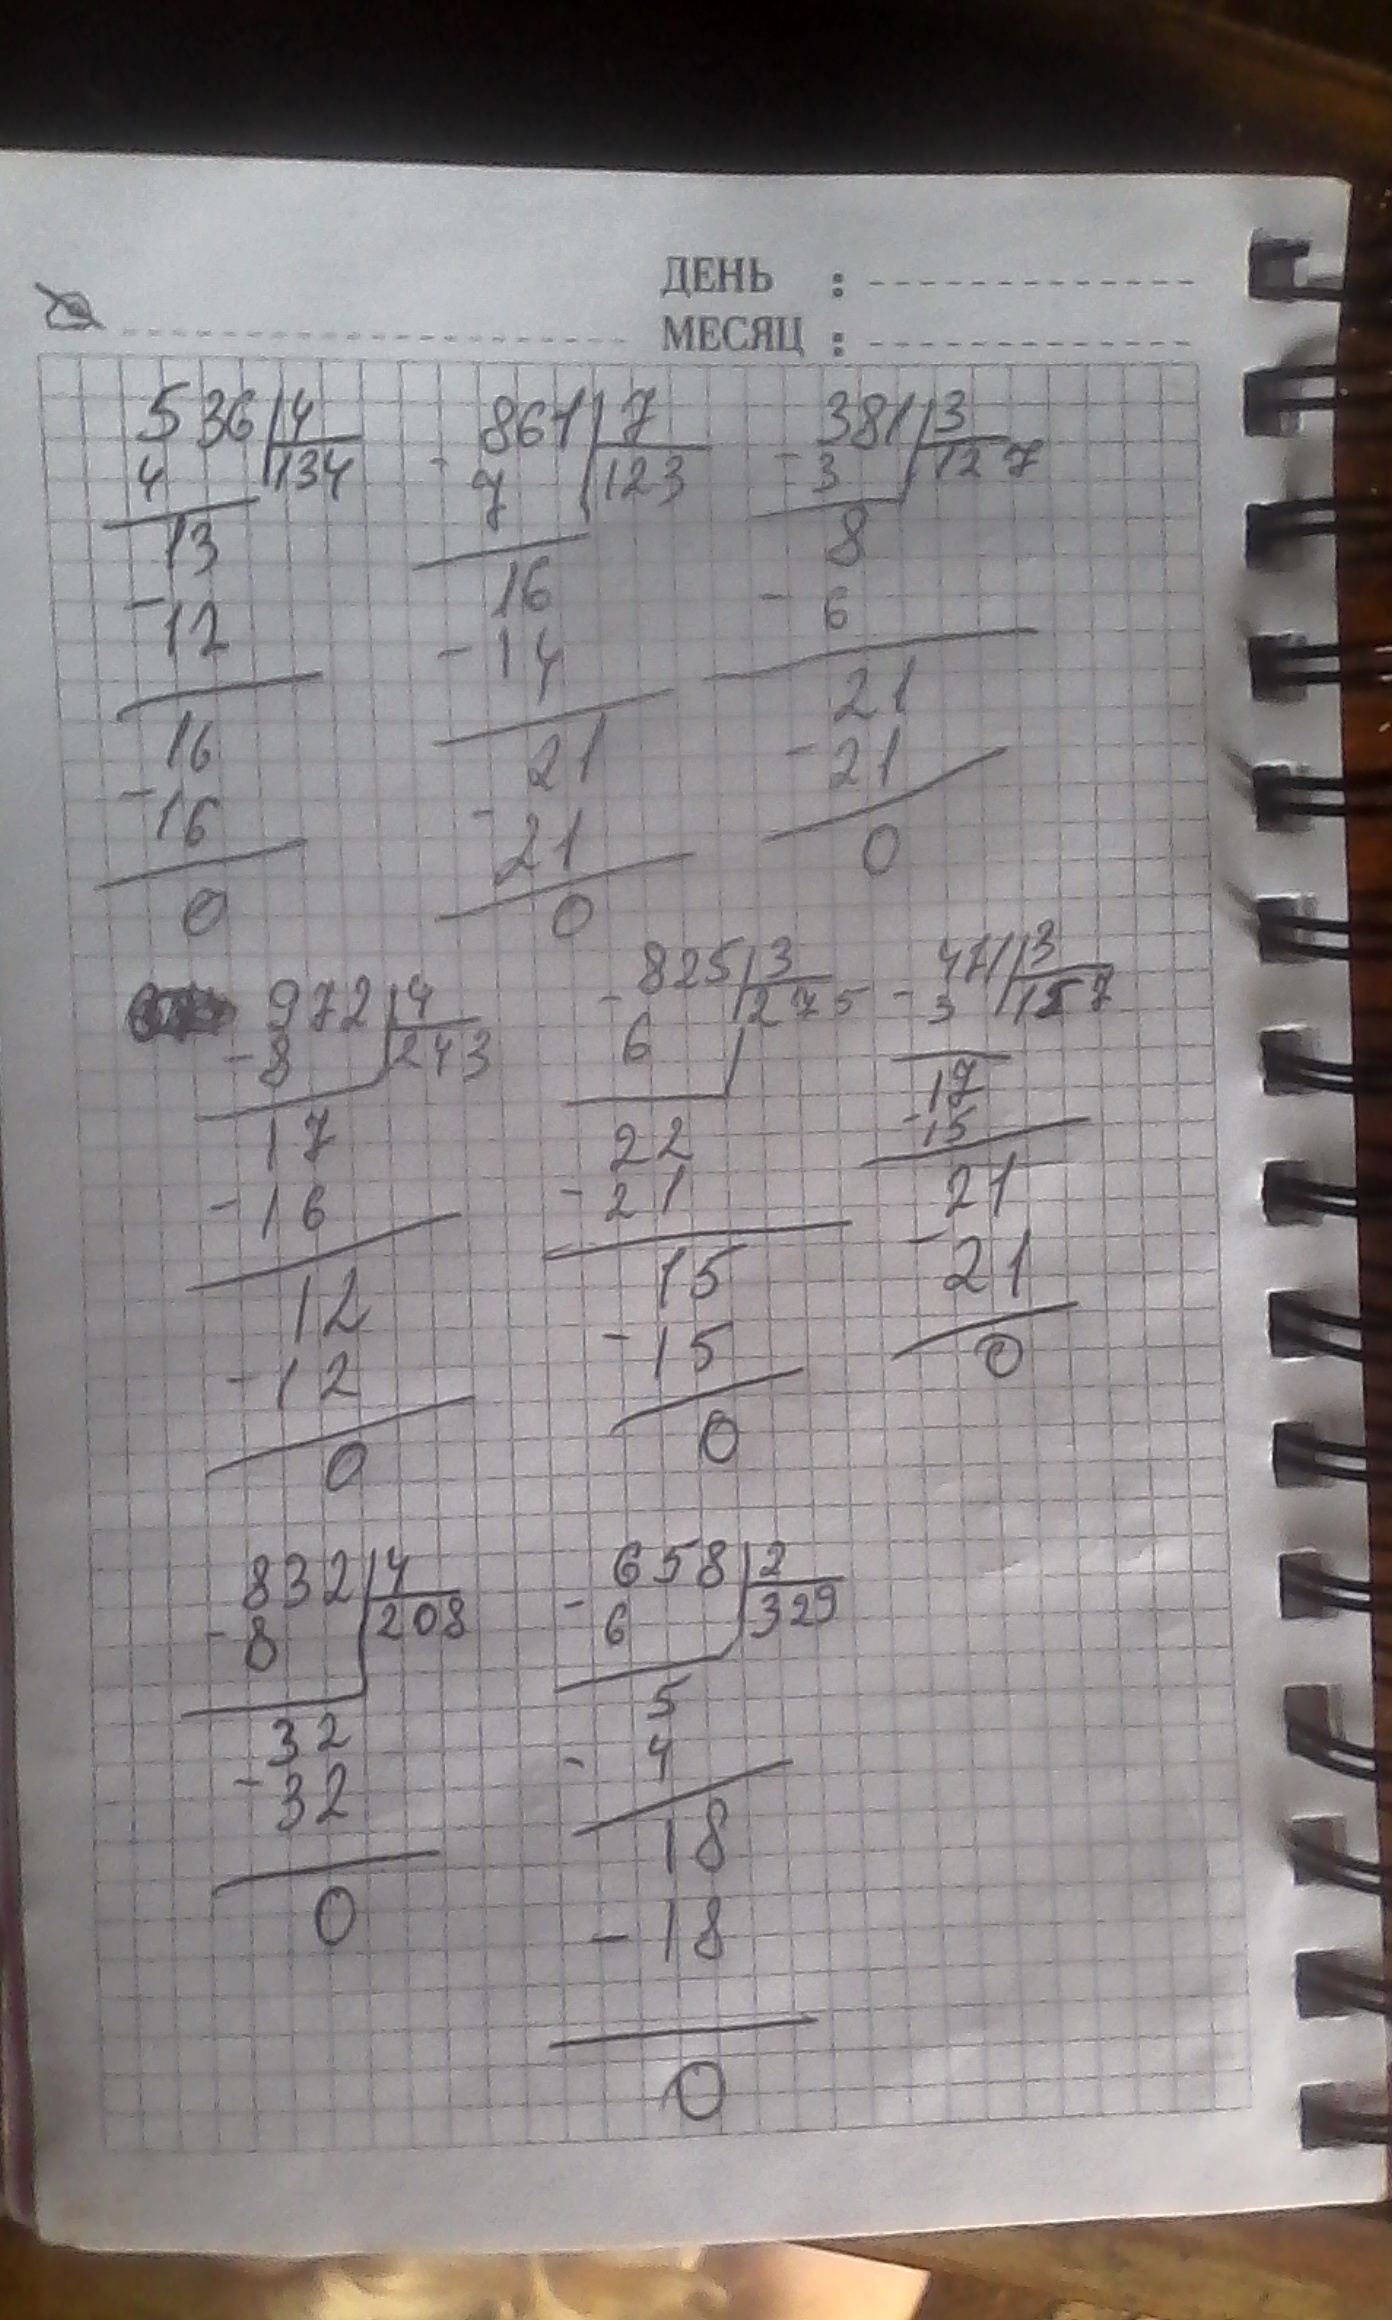 ДЕНЬ :
МЕСЯЦ :
536 4 - 861 7 - 381 3
4 134 7 123 3 127
13 16 8
- 12 - 14 - 6
16 21 21
- 16 - 21 - 21
0 0 0
- 972 4 - 825 3 - 471 3
8 243 6 275 3 157
17 22 17
- 16 - 21 - 15
12 15 21
- 12 - 15 - 21
0 0 0
- 832 4 - 658 2
8 208 6 329
32 5
- 32 - 4
0 18
- 18
0